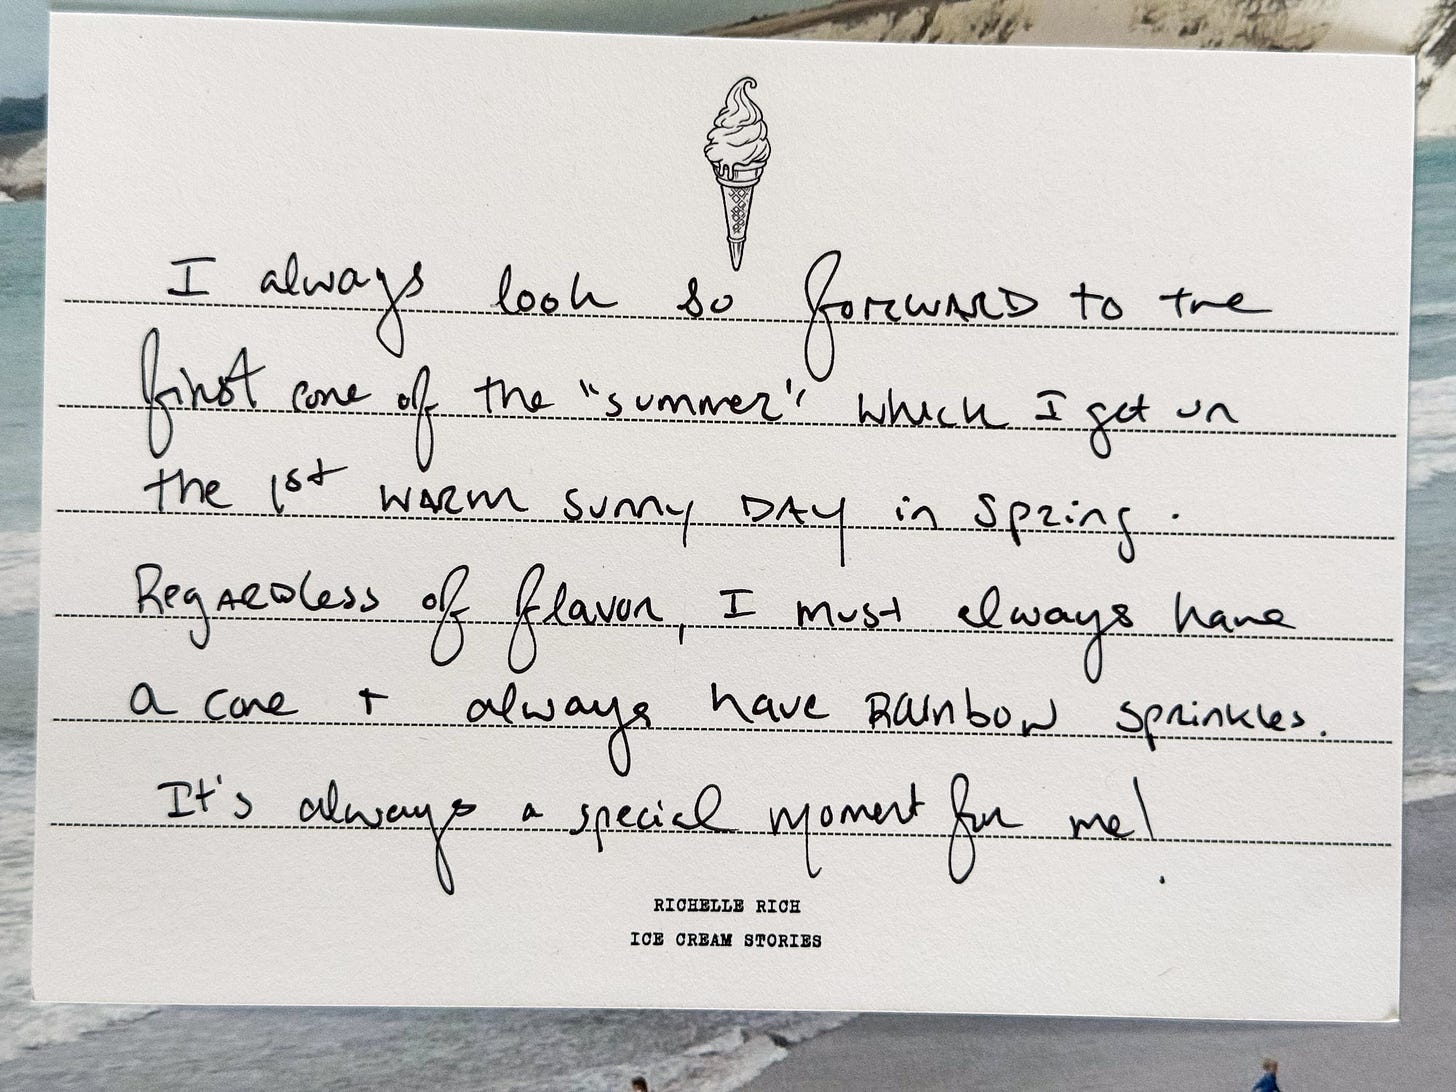 I always look so forward to the
first cone of the "summer" which I get on
the 1st warm sunny day in Spring.
Regardless of flavor, I must always have
a cone + always have Rainbow sprinkles.
It's always a special moment for me!
RICHELLE RICH
ICE CREAM STORIES